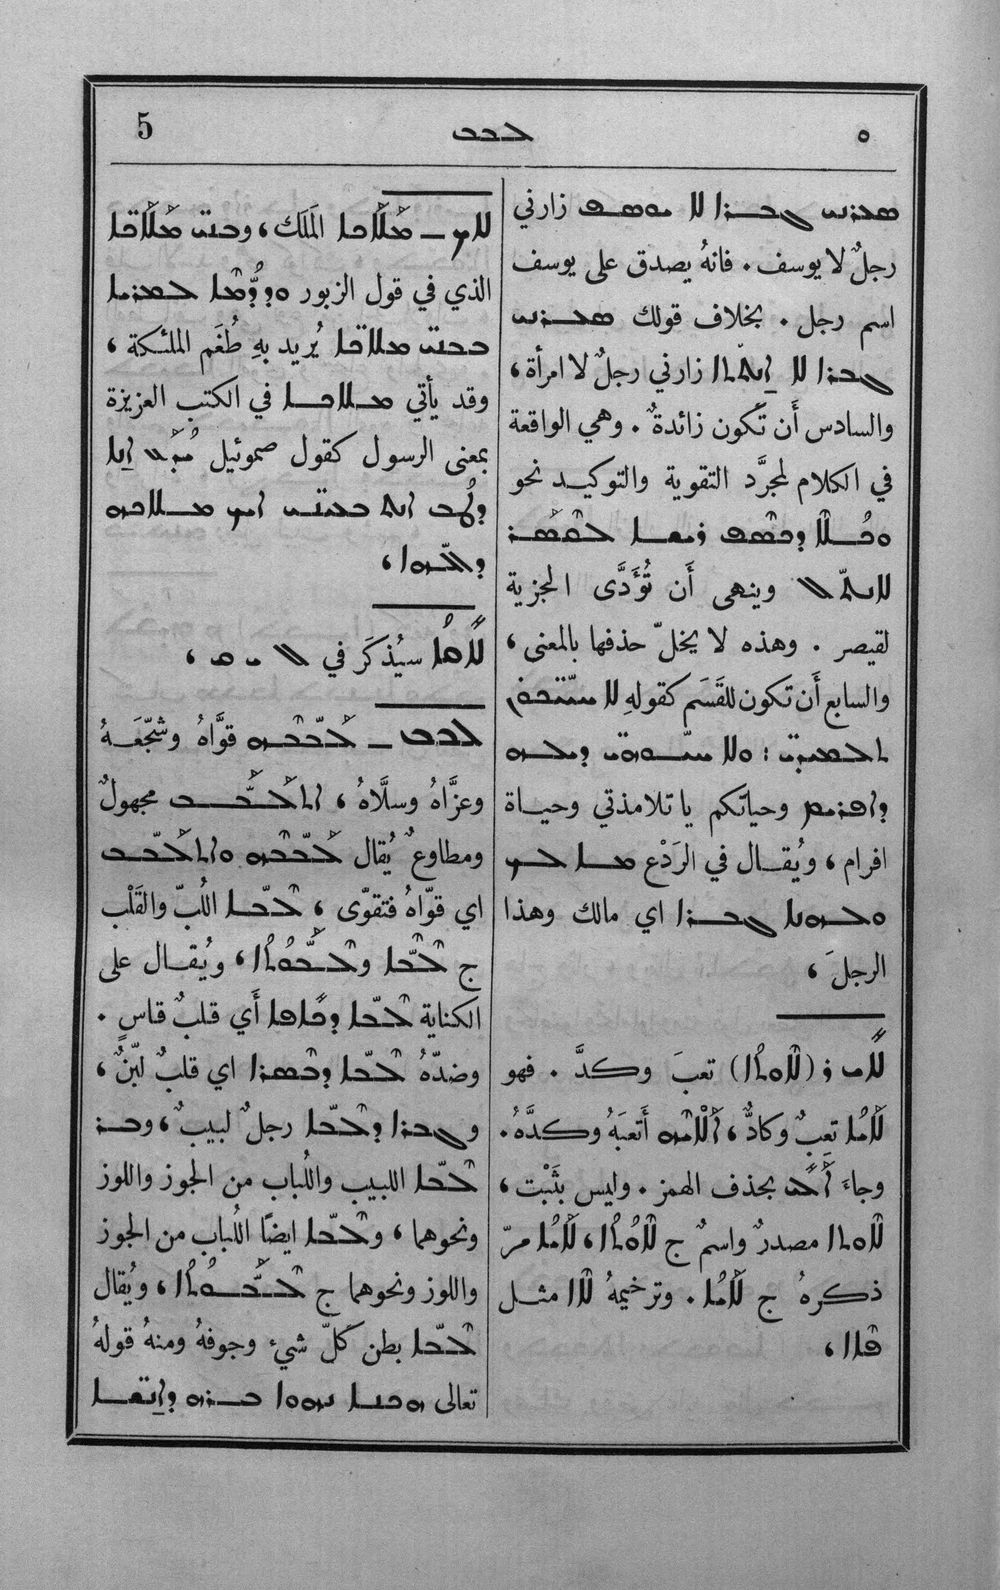 5 ܠܒܒ ٥
ܣܥܪܢܝ ܓܒܪܐ ܠܐ ܝܘܣܦ زارني
رجلٌ لا يوسف . فانهُ يصدق على يوسف
اسم رجل . بخلاف قولك ܣܥܪܢܝ
ܓܒܪܐ ܠܐ ܐܢܬܬܐ زارني رجلٌ لا امرأة ،
والسادس أَن تَكون زائدةٌ . وهي الواقعة
في الكلام لمجرَّد التقوية والتوكيد نحو
ܘܟܠܐ ܕܟܣܦ ܪܝܫܐ ܠܩܣܪ
ܠܐ ܢܬܠ وينهى أَن تُؤَدَّى الجزية
لقيصر . وهذه لا يخلّ حذفها بالمعنى ،
والسابع أَن تكون للقَسَم كقولهِ ܠܐ ܚܝܝܟܘܢ
ܬܠܡܝܕܝ : ܘܠܐ ܚܝܘܗܝ ܕܝܠܗ
ܕܐܦܪܝܡ وحياتكم يا تلامذتي وحياة
افرام ، ويُقال في الرَدْع ܡܐ ܠܟ
ܘܠܗܢܐ ܓܒܪܐ اي مالك وهذا
الرجلَ ،
ܠܐܝ ܪ (ܠܐܘܬܐ) تعبَ وكدَّ . فهو
ܠܐܝܐ تعِبٌ وكادٌّ ، ܐܠܐܝܗ أَتعبَهُ وكدَّهُ .
وجاءَ ܐܠܝ بحذف الهمز . وليس بثَبْت ،
ܠܐܘܬܐ مصدرٌ واسمٌ ج ܠܐܘܬܐ ، ܠܐܝܐ مرّ
ذكرهُ ج ܠܐܝܐ . وترخيمهُ ܠܐܐ مثل
ܩܐܐ ،
ܠܐܟ ــ ܡܠܐܟܐ المَلَك ، ܘܒܢܝ ܡܠܐܟܐ
الذي في قول الزبور ܘܕܘܡܐ ܠܒܣܪܝܐ
ܒܒܢܝ ܡܠܐܟܐ يُريد بهِ طُغَم الملئكة ،
وقد يأتي ܡܠܐܟܐ في الكتب العزيزة
بمعنى الرسول كقول صموئيل ܝܕܥ ܐܢܐ
ܕܛܒ ܐܢܬ ܒܥܝܢܝ ܐܝܟ ܡܠܐܟܗ
ܕܐܠܗܐ ،
ܠܐܡܐ سيُذكَر في ܠ ܝ ܡ ،
ܠܒܒ ــ ܠܒܒܗ قوَّاهُ وشجّعَهُ
وعزَّاهُ وسلَّاهُ ، ܐܬܠܒܒ مجهولٌ
ومطاوعٌ يُقال ܠܒܒܗ ܘܐܬܠܒܒ
اي قوّاهُ فتقوّى ، ܠܒܐ اللُبّ والقَلْب
ج ܠܒܐ ܘܠܒܘܬܐ ، ويُقال على
الكناية ܠܒܐ ܕܟܐܦܐ أَي قلبٌ قاسٍ .
وضدّهُ ܠܒܐ ܕܒܣܪܐ اي قلبٌ ليّنٌ ،
ܘܓܒܪܐ ܕܠܒܐ رجلٌ لبيبٌ ، ܘܒܪ
ܠܒܐ اللبيب واللُباب من الجوز واللوز
ونحوهما ، ܘܠܒܐ ايضًا اللُباب من الجوز
واللوز ونحوهما ج ܠܒܘܬܐ ، ويُقال
ܠܒܐ بطن كلّ شيء وجوفهُ ومنهُ قولهُ
تعالى ܗܟܢܐ ܢܗܘܐ ܒܪܗ ܕܐܢܫܐ